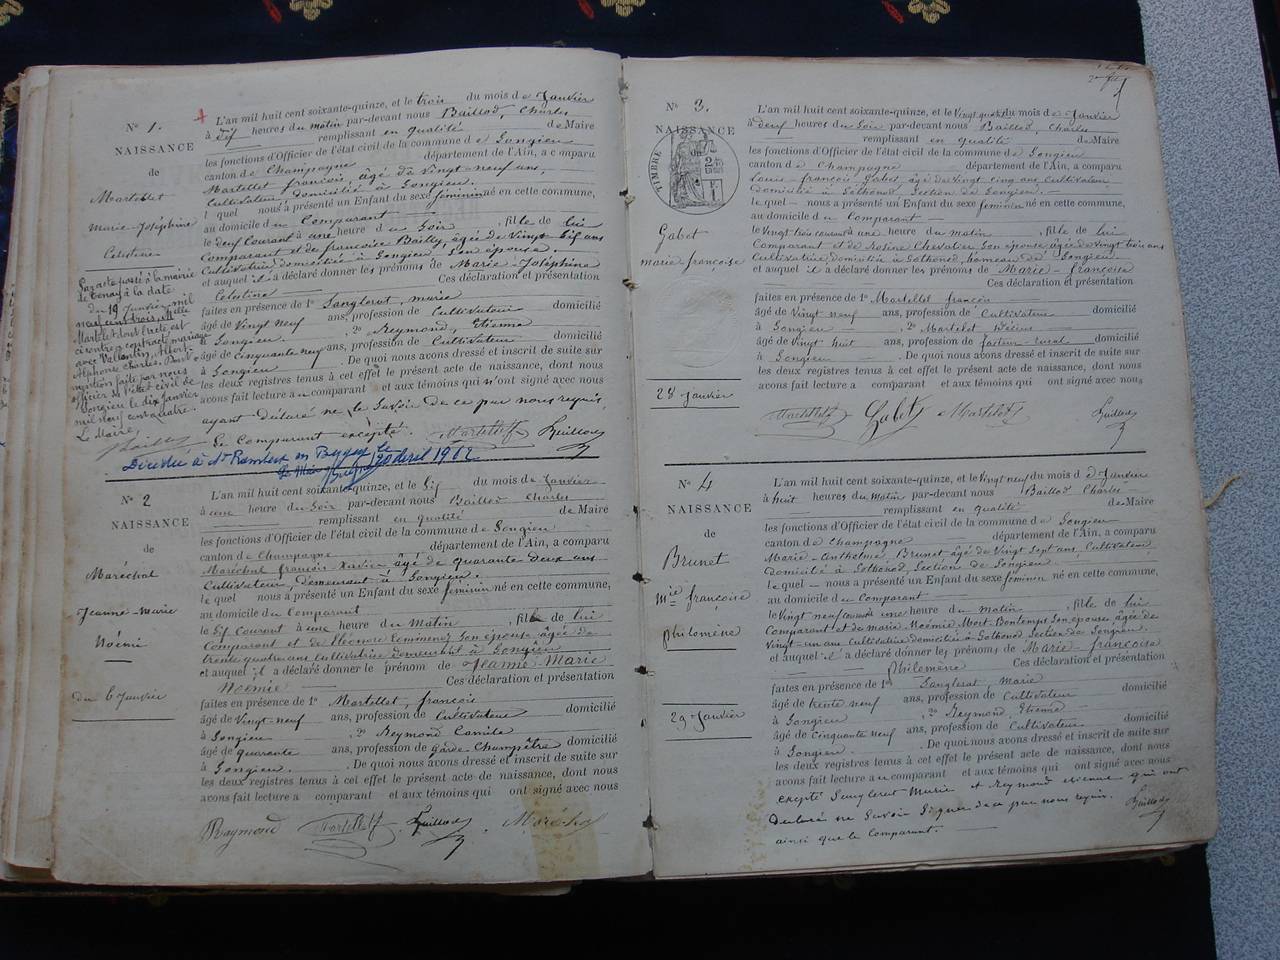 N° 1.
NAISSANCE
de
Martellet
Marie-Joséphine
Célestine
Par acte posté à la mairie
de Tenay à la date
du 19 Janvier mil
neuf cent trois, Melle
Martelet dont l'acte est
ci contre, a contracté mariage
avec Vallantin, Albert
Alphonse Charles. Dont
mention faite par nous
officier de l'état civil de
Songieu le dix Janvier
mil neuf cent quatre.
Le Maire,
L'an mil huit cent soixante-quinze, et le trois du mois de Janvier
à dix heures du matin par-devant nous Baillod, Charles
remplissant en qualité de Maire
les fonctions d'Officier de l'état civil de la commune de Songieu
canton de Champagne département de l'Ain, a comparu
Martellet françois, âgé de vingt-neuf ans,
Cultivateur domicilié à Songieu.
lequel nous a présenté un Enfant du sexe féminin né en cette commune,
au domicile du Comparant
le deux Courant à une heure du Soir, fille de lui
Comparant et de françoise Bailly, âgée de vingt-six ans
Cultivatrice domiciliée à Songieu, son épouse.
et auquel il a déclaré donner les prénoms de Marie-Joséphine
Célestine Ces déclaration et présentation
faites en présence de 1° Sanglerat, marie
âgé de vingt neuf ans, profession de Cultivateur domicilié
à Songieu. , 2° Reymond, Etienne
âgé de cinquante neuf ans, profession de Cultivateur domicilié
à Songieu . De quoi nous avons dressé et inscrit de suite sur
les deux registres tenus à cet effet le présent acte de naissance, dont nous
avons fait lecture au comparant et aux témoins qui n'ont signé avec nous
ayant déclaré ne le savoir de ce par nous requis,
Le Comparant excepté. Martellet Baillod
Décédée à St Rambert en Bugey le
20 avril 1962
N° 2
NAISSANCE
de
Maréchal
Jeanne-Marie
Noémie
du 6 Janvier
L'an mil huit cent soixante-quinze, et le six du mois de Janvier
à une heure du Soir par-devant nous Baillod Charles
remplissant en qualité de Maire
les fonctions d'Officier de l'état civil de la commune de Songieu
canton de Champagne département de l'Ain, a comparu
Maréchal françois Xavier âgé de quarante deux ans
Cultivateur, demeurant à Songieu.
le quel nous a présenté un Enfant du sexe féminin né en cette commune,
au domicile du Comparant
le six courant à une heure du Matin , fille de lui
Comparant et de Son épouse âgée de
trente quatre ans Cultivatrice demeurant à Songieu
et auquel il a déclaré donner le prénom de Jeanne Marie
Noémie Ces déclaration et présentation
faites en présence de 1° Martellet, françois
âgé de vingt-neuf ans, profession de Cultivateur domicilié
à Songieu , 2° Reymond Camille
âgé de quarante ans, profession de garde Champêtre domicilié
à Songieu. . De quoi nous avons dressé et inscrit de suite sur
les deux registres tenus à cet effet le présent acte de naissance, dont nous
avons fait lecture a comparant et aux témoins qui ont signé avec nous
Raymond Martellet Baillod Maréchal
N° 3.
NAISSANCE
TIMBRE
Gabet
marie françoise
28 Janvier
L'an mil huit cent soixante-quinze, et le vingt quatre du mois de Janvier
à deux heures du Soir par-devant nous Baillod, Charles
remplissant en qualité de Maire
les fonctions d'Officier de l'état civil de la commune de Songieu
canton de Champagne département de l'Ain, a comparu
Louis-françois Gabet, âgé de vingt cinq ans Cultivateur
domicilié à Sothonod, Section de Songieu.
le quel nous a présenté un Enfant du sexe féminin né en cette commune,
au domicile du Comparant
le vingt trois courant à une heure du matin , fille de lui
Comparant et de Rosine Chevalier Son épouse âgée de vingt trois ans
Cultivatrice domiciliée à Sothonod, hameau de Songieu
et auquel il a déclaré donner les prénoms de Marie-françoise
Ces déclaration et présentation
faites en présence de 1° Martellet françois
âgé de vingt neuf ans, profession de Cultivateur domicilié
à Songieu , 2° Martelet
âgé de vingt huit ans, profession de facteur-rural domicilié
à Songieu . De quoi nous avons dressé et inscrit de suite sur
les deux registres tenus à cet effet le présent acte de naissance, dont nous
avons fait lecture a comparant et aux témoins qui ont signé avec nous
Martellet Gabet Martelet Baillod
N° 4
NAISSANCE
de
Brunet
Mie françoise
philomène
29 Janvier
L'an mil huit cent soixante-quinze, et le vingt neuf du mois de Janvier
à huit heures du Matin par-devant nous Baillod Charles
remplissant en qualité de Maire
les fonctions d'Officier de l'état civil de la commune de Songieu
canton de Champagne département de l'Ain, a comparu
Marie-Anthelme Brunet âgé de vingt sept ans, Cultivateur
domicilié à Sothonod, Section de Songieu.
le quel nous a présenté un Enfant du sexe féminin né en cette commune,
au domicile du Comparant
le vingt neuf courant à une heure du matin , fille de lui
Comparant et de marie Noémie Mort-Bontemps son épouse âgée de
vingt-un ans Cultivatrice domiciliée à Sothonod Section de Songieu.
et auquel il a déclaré donner les prénoms de Marie-françoise
philomène Ces déclaration et présentation
faites en présence de 1° Sanglerat, marie
âgé de trente neuf ans, profession de Cultivateur domicilié
à Songieu , 2° Reymond, Etienne
âgé de cinquante neuf ans, profession de Cultivateur domicilié
à Songieu. . De quoi nous avons dressé et inscrit de suite sur
les deux registres tenus à cet effet le présent acte de naissance, dont nous
avons fait lecture au comparant et aux témoins qui ont signé avec nous
excepté Senglerat Marie et Reymond etienne qui ont
déclaré ne savoir Signer de ce par nous requis. Baillod
ainsi que le comparant.